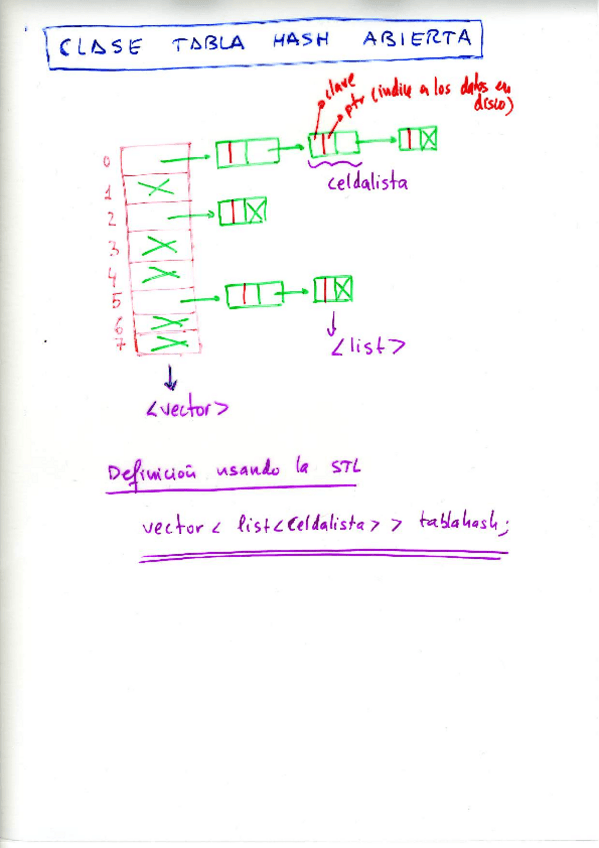 CLASE TABLA HASH ABIERTA
clave
ptr (indice a los datos en
disco)
0
celdalista
1
2
3
4
5
6
7
<list>
<vector>
Definición usando la STL
vector < list<celdalista> > tablahash;